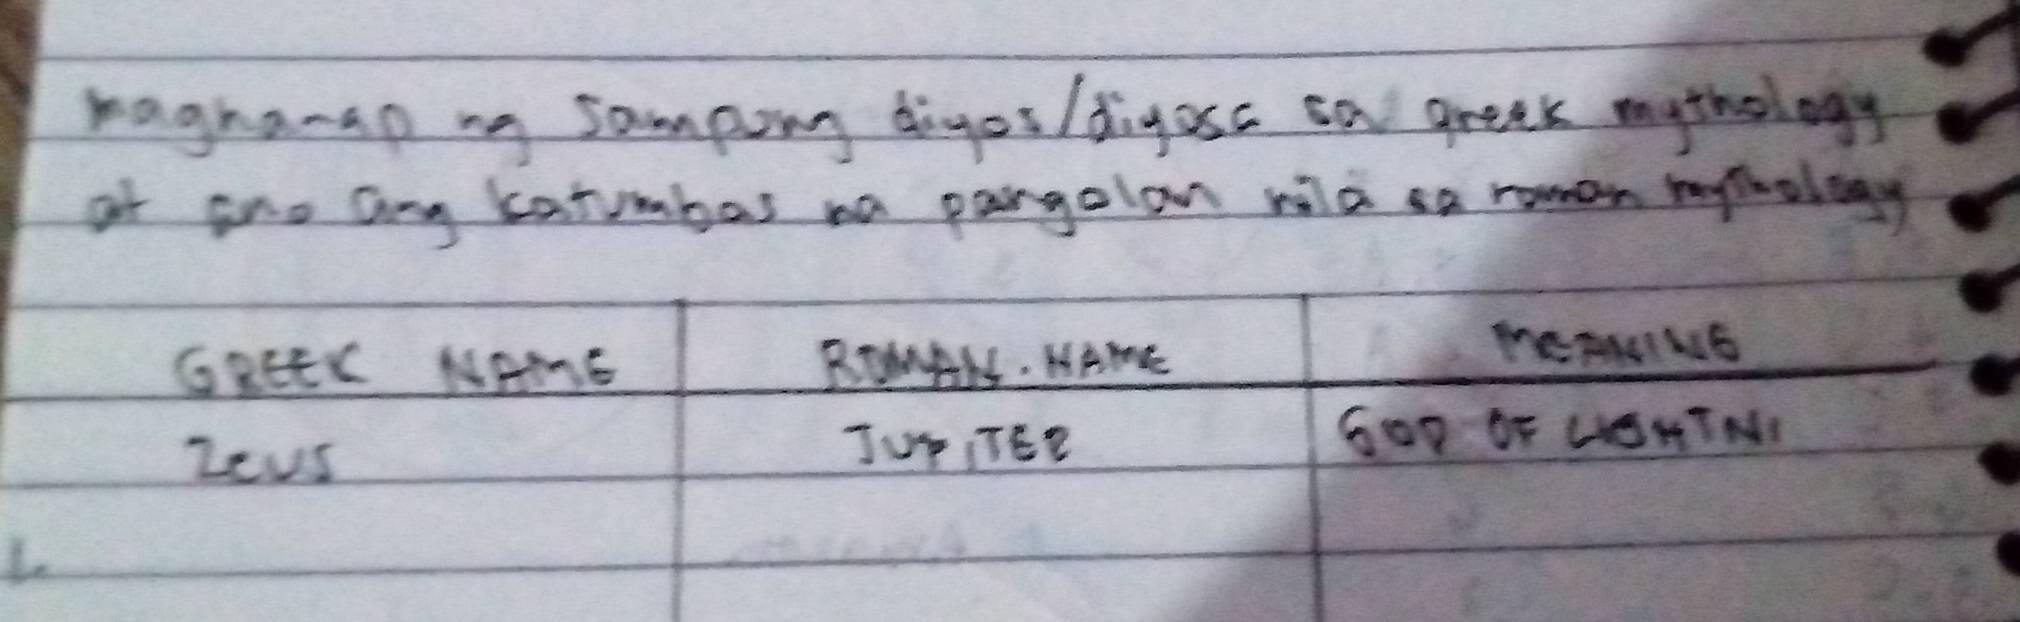 maghanap ng sampung diyos/diyosa sa greek mythology
at ano ang katumbas na pangalan nila sa roman mythology
GREEK NAME ROMAN. NAME MEANING
Zeus JUPITER GOD OF LIGHTNI
1.